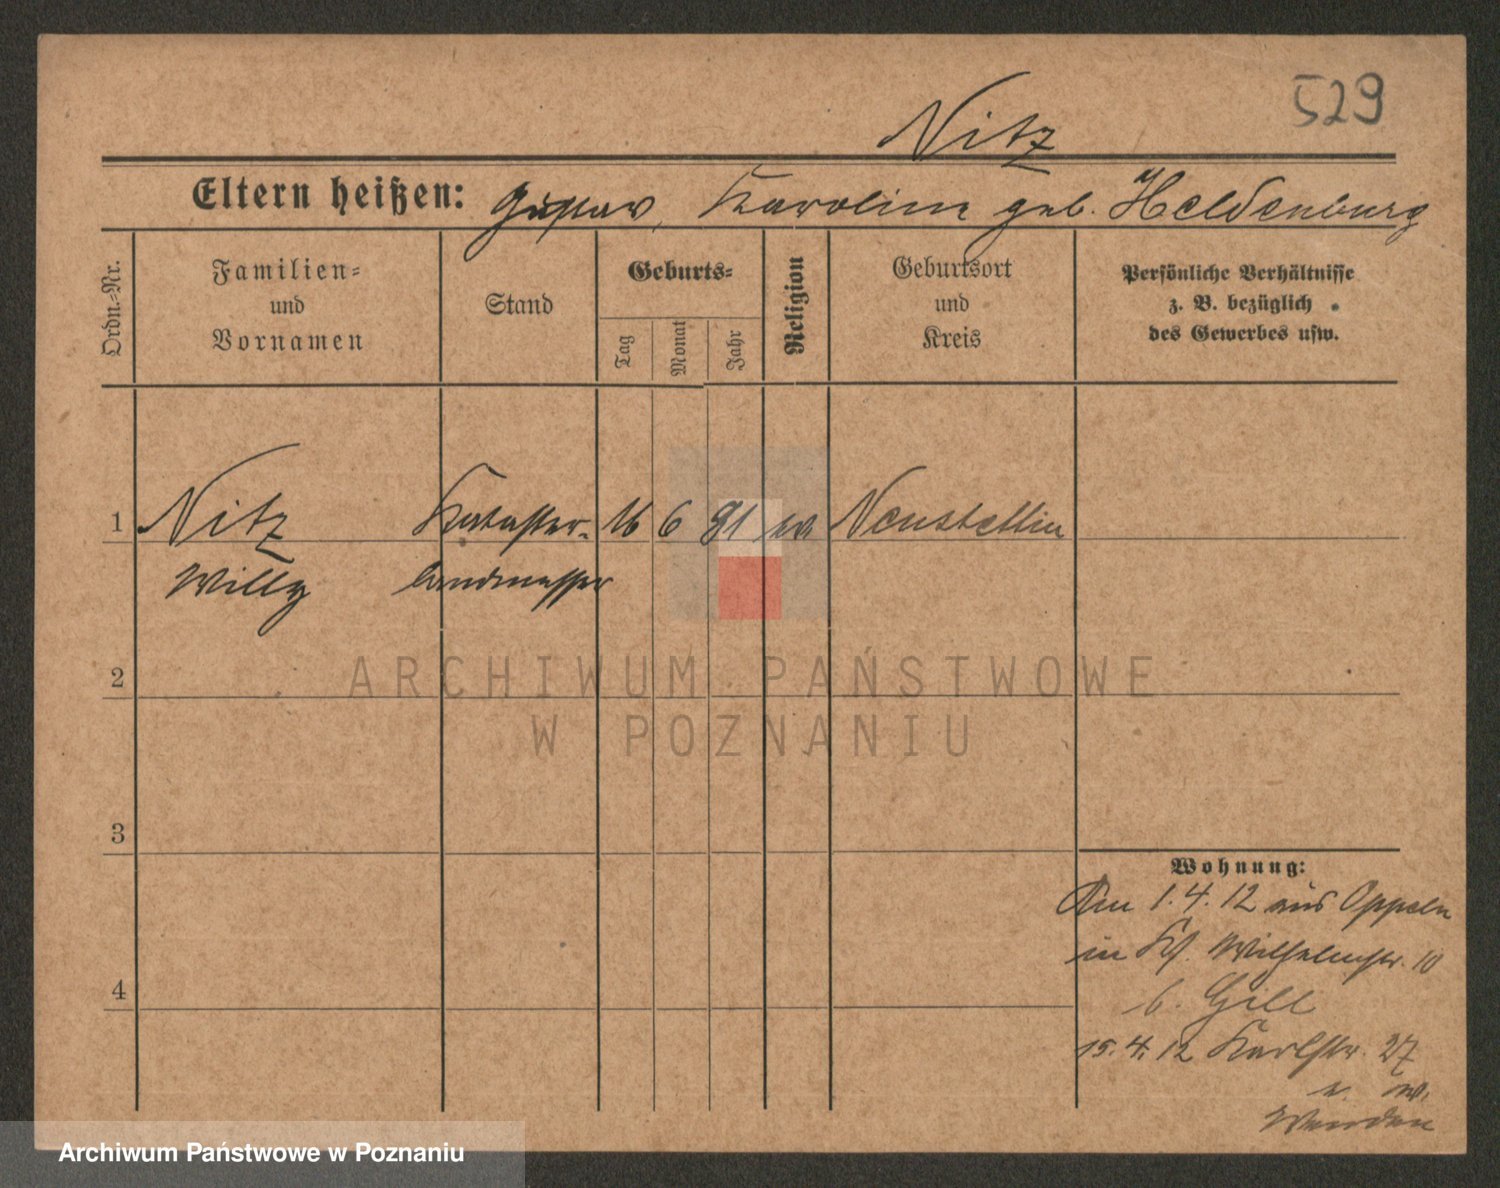 529
Nitz
Eltern heißen: Gustav, Karoline geb. Heldenburg
Ordn.-Nr.
Familien-
und
Vornamen
Stand
Geburts-
Tag
Monat
Jahr
Religion
Geburtsort
und
Kreis
Persönliche Verhältnisse
z. B. bezüglich
des Gewerbes usw.
1 Nitz Kataster- 16 6 81 ev Neustettin
Willy landmesser
2
3
4
Wohnung:
Am 1.4.12 aus Oppeln
in Wilhelmstr. 10
b. Gill
15.4.12 Karlstr. 27
ARCHIWUM PAŃSTWOWE
W POZNANIU
Archiwum Państwowe w Poznaniu